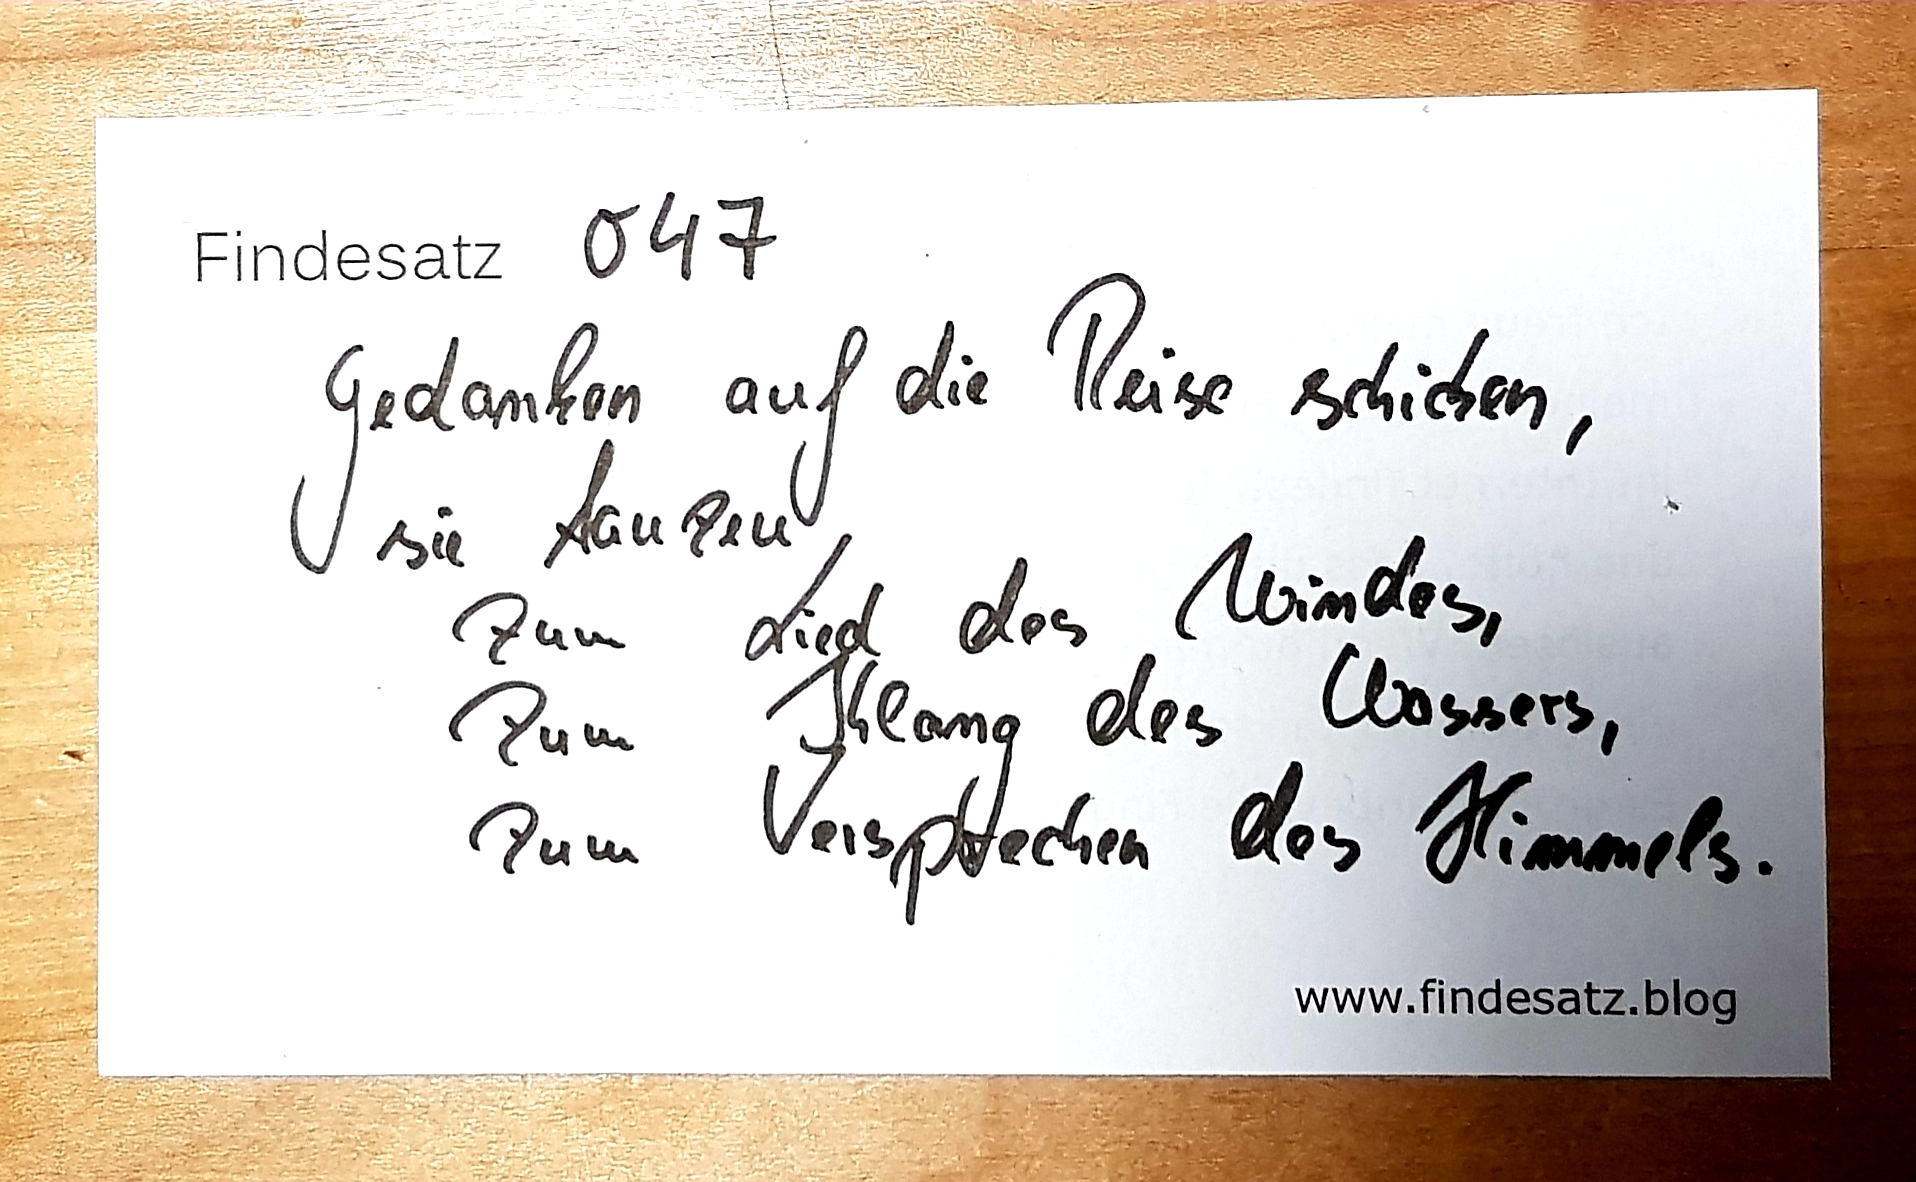 Findesatz 047
Gedanken auf die Reise schicken,
sie tanzen
zum Lied des Windes,
zum Klang des Wassers,
zum Versprechen des Himmels.
www.findesatz.blog